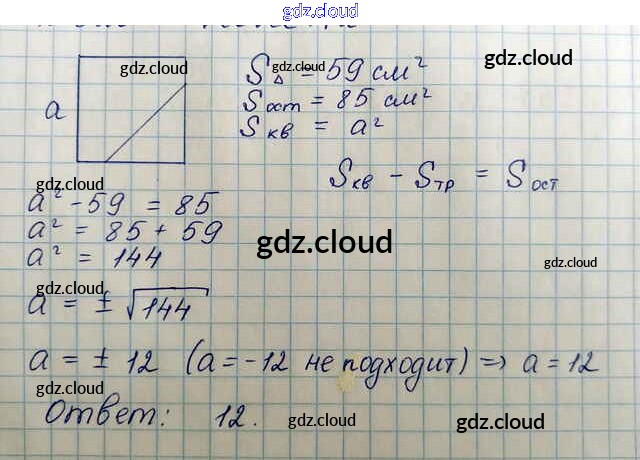 gdz.cloud
gdz.cloud
gdz.cloud
gdz.cloud
a
S△ = 59 см²
Sост = 85 см²
Sкв = a²
Sкв - Sтр = Sост
gdz.cloud
a² - 59 = 85
a² = 85 + 59
a² = 144
gdz.cloud
gdz.cloud
gdz.cloud
a = ± √144
a = ± 12 (a = -12 не подходит) => a = 12
gdz.cloud
Ответ: 12.
gdz.cloud
gdz.cloud
gdz.cloud